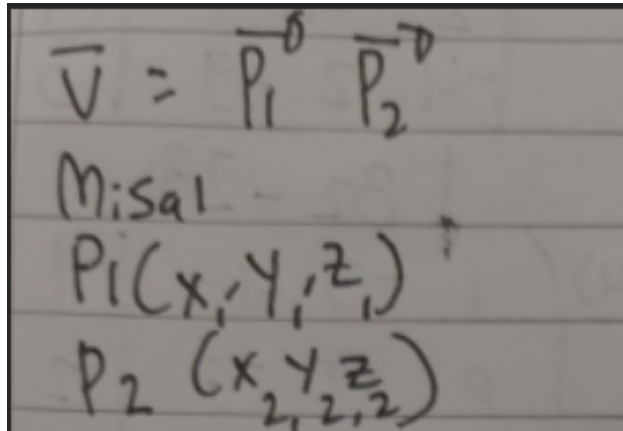 V̅ = P₁⃗ P₂⃗
Misal
P₁(x₁, y₁, z₁)
P₂ (x₂, y₂, z₂)